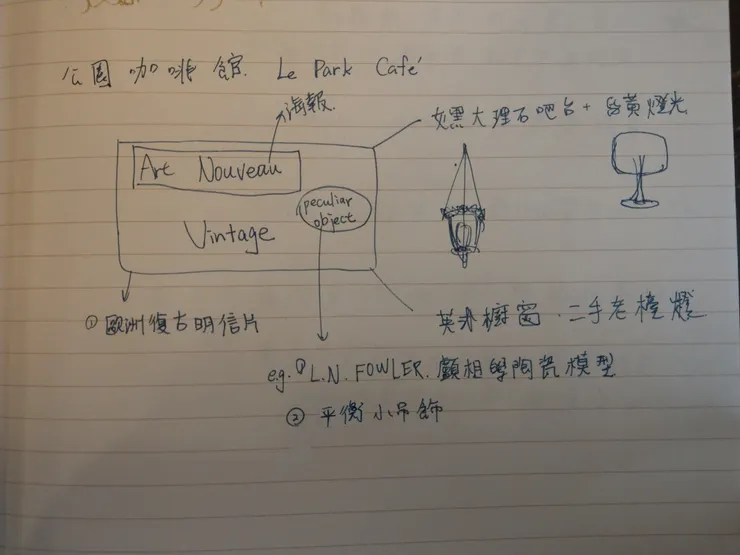 公園咖啡館. Le Park Café
海報
大理石吧台 + 昏黃燈光
Art Nouveau
peculiar
object
Vintage
① 歐洲復古明信片
英式櫥窗. 二手老檯燈
e.g. ① L.N. FOWLER. 顱相學陶瓷模型
② 平衡小吊飾